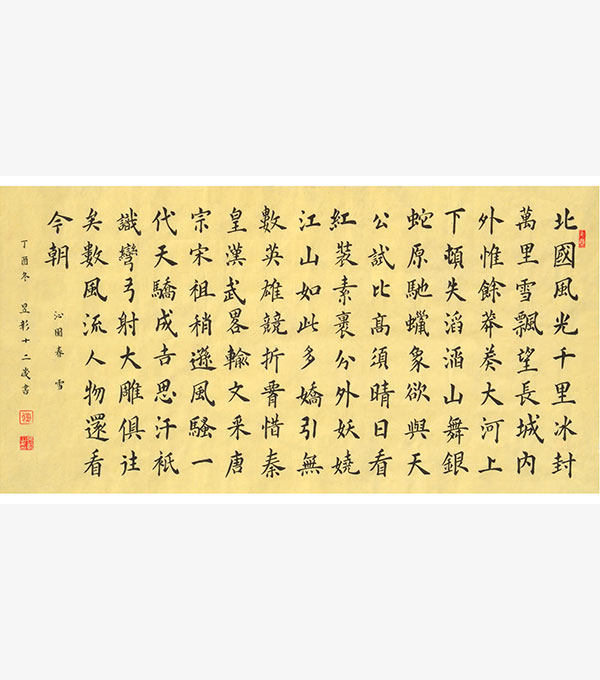 北國風光千里冰封
萬里雪飄望長城内
外惟餘莽莽大河上
下頓失滔滔山舞銀
蛇原馳蠟象欲與天
公試比高須晴日看
紅裝素裹分外妖嬈
江山如此多嬌引無
數英雄競折腰惜秦
皇漢武畧輸文采唐
宗宋祖稍遜風騷一
代天驕成吉思汗衹
識彎弓射大雕俱往
矣數風流人物還看
今朝
沁園春 雪
丁酉冬 十二歲書